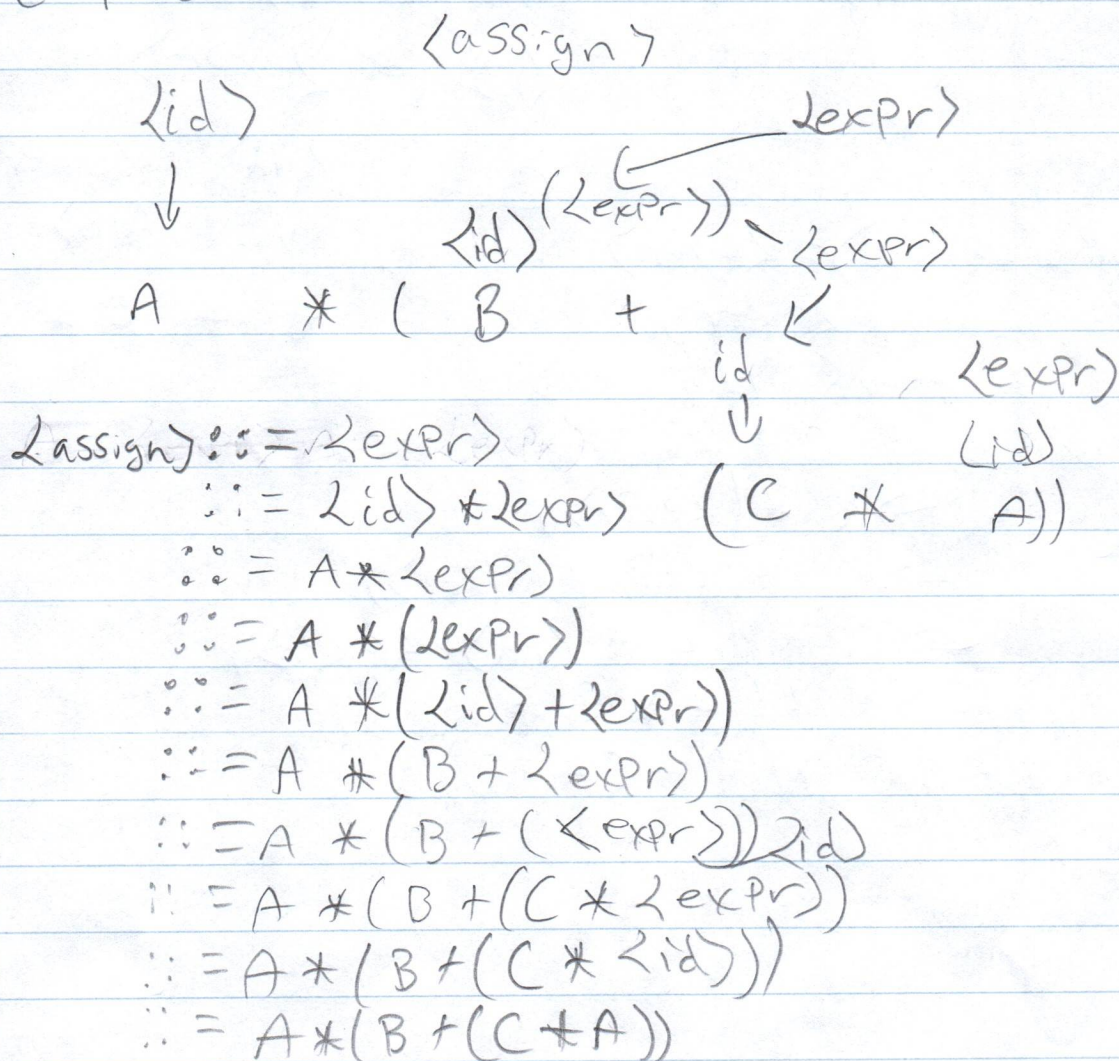 <assign>
<id> <expr>
(<expr>))
<id> <expr>
A * ( B +
id <expr>
<assign> ::= <expr> <id>
::= <id> * <expr> (C * A))
::= A * <expr>
::= A * (<expr>)
::= A * (<id> + <expr>)
::= A * (B + <expr>)
::= A * (B + (<expr>)) <id>
::= A * (B + (C * <expr>))
::= A * (B + (C * <id>))
::= A * (B + (C * A))